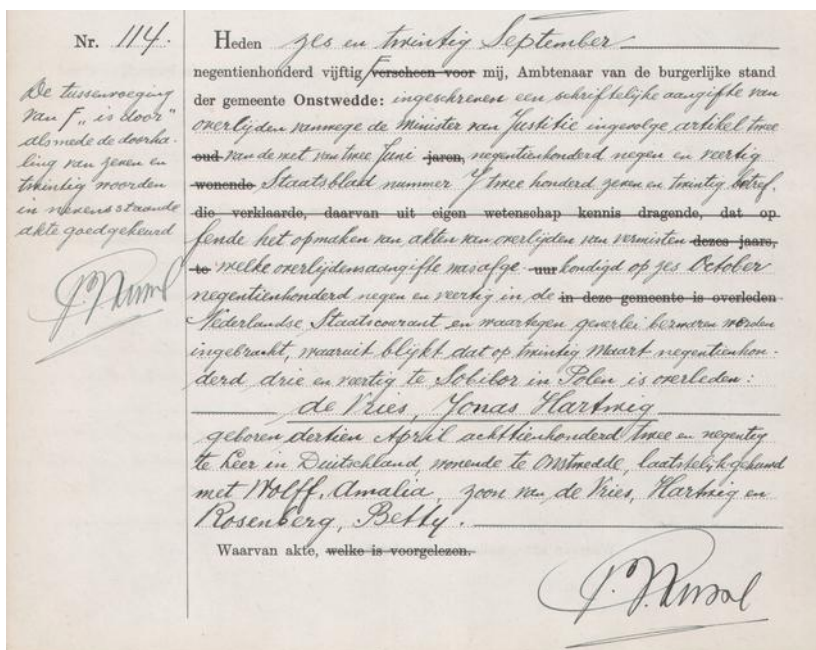 Nr. 114.
De tussenvoeging
van F „is door"
alsmede de doorha-
ling van zeven en
twintig woorden
in nevenstaande
akte goedgekeurd
Heden zes en twintig September
negentienhonderd vijftig F verscheen voor mij, Ambtenaar van de burgerlijke stand
der gemeente Onstwedde: ingeschreven een schriftelijke aangifte van
overlijden vanwege de Minister van Justitie ingevolge artikel twee
oud van de wet van twee Juni jaren, negentienhonderd negen en veertig
wonende Staatsblad nummer J twee honderd zeven en twintig betref.
die verklaarde, daarvan uit eigen wetenschap kennis dragende, dat op
fende het opmaken van akten van overlijden van vermisten dezes jaars,
te welke overlijdensaangifte was afge uur kondigd op zes October
negentienhonderd negen en veertig in de in deze gemeente is overleden
Nederlandse Staatscourant en waartegen generlei bezwaren werden
ingebracht, waaruit blijkt dat op twintig Maart negentienhon-
derd drie en veertig te Sobibor in Polen is overleden:
de Vries, Jonas Hartwig
geboren dertien April achttienhonderd twee en negentig
te Leer in Duitschland, wonende te Onstwedde, laatstelijk gehuwd
met Wolff, Amalia, zoon van de Vries, Hartwig en
Rosenberg, Betty.
Waarvan akte, welke is voorgelezen.